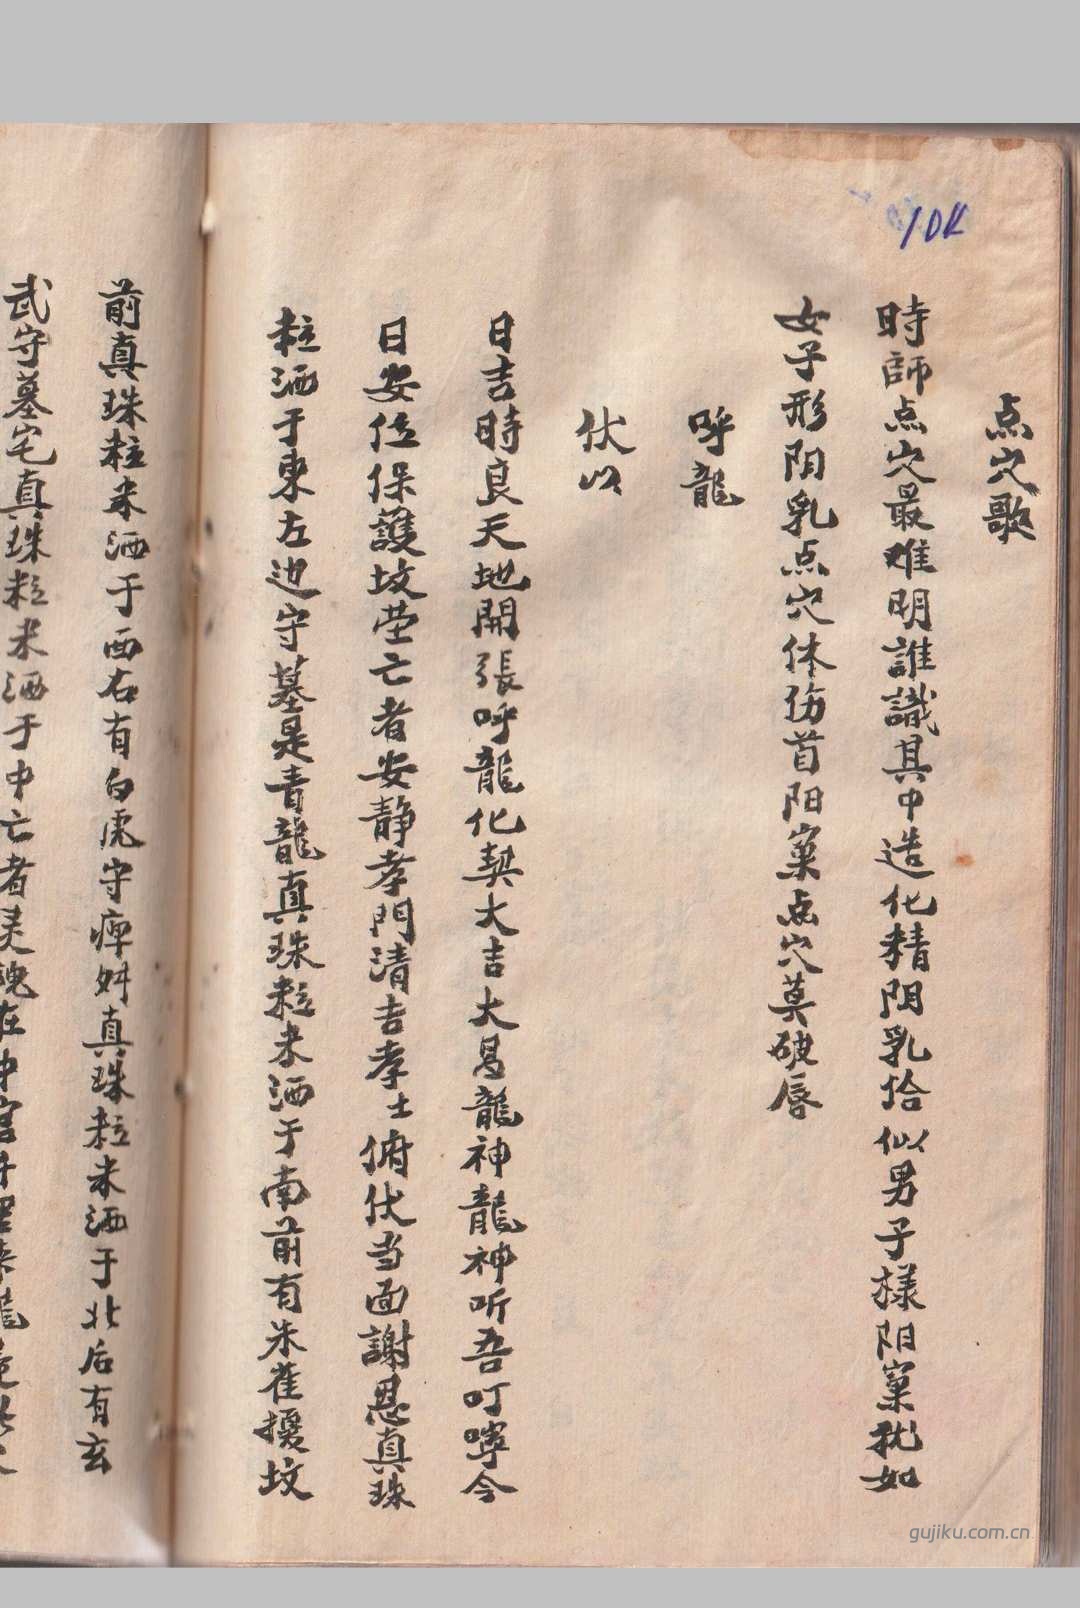 10K
点穴歌
時師点穴最难明誰識其中造化精阴乳恰似男子樣阳窠犹如
女子形阴乳点穴体伤首阳窠点穴莫破唇
呼龍
伏以
日吉時良天地開張呼龍化契大吉大昌龍神龍神听吾叮嚀今
日安位保護坟茔亡者安静孝門清吉孝士俯伏当面謝恩真珠
粒洒于東左边守墓是青龍真珠粒米洒于南前有朱雀擾坟
前真珠粒米洒于西右有白虎守痺真珠粒米洒于北后有玄
武守墓宅真珠粒米洒于中亡者灵魂在中宫
gujiku.com.cn